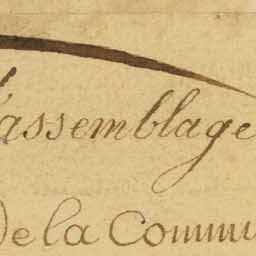 'assemblage
De la Commu